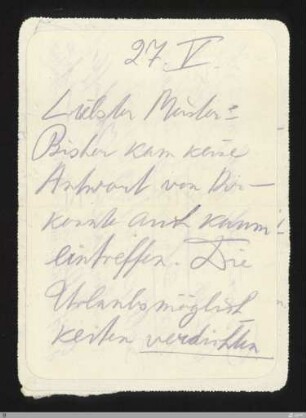 27. V.
Liebster Meister:
Bisher kam keine
Antwort von Dir –
konnte auch kaum
eintreffen. Die
Urlaubsmöglich-
keiten verdichten